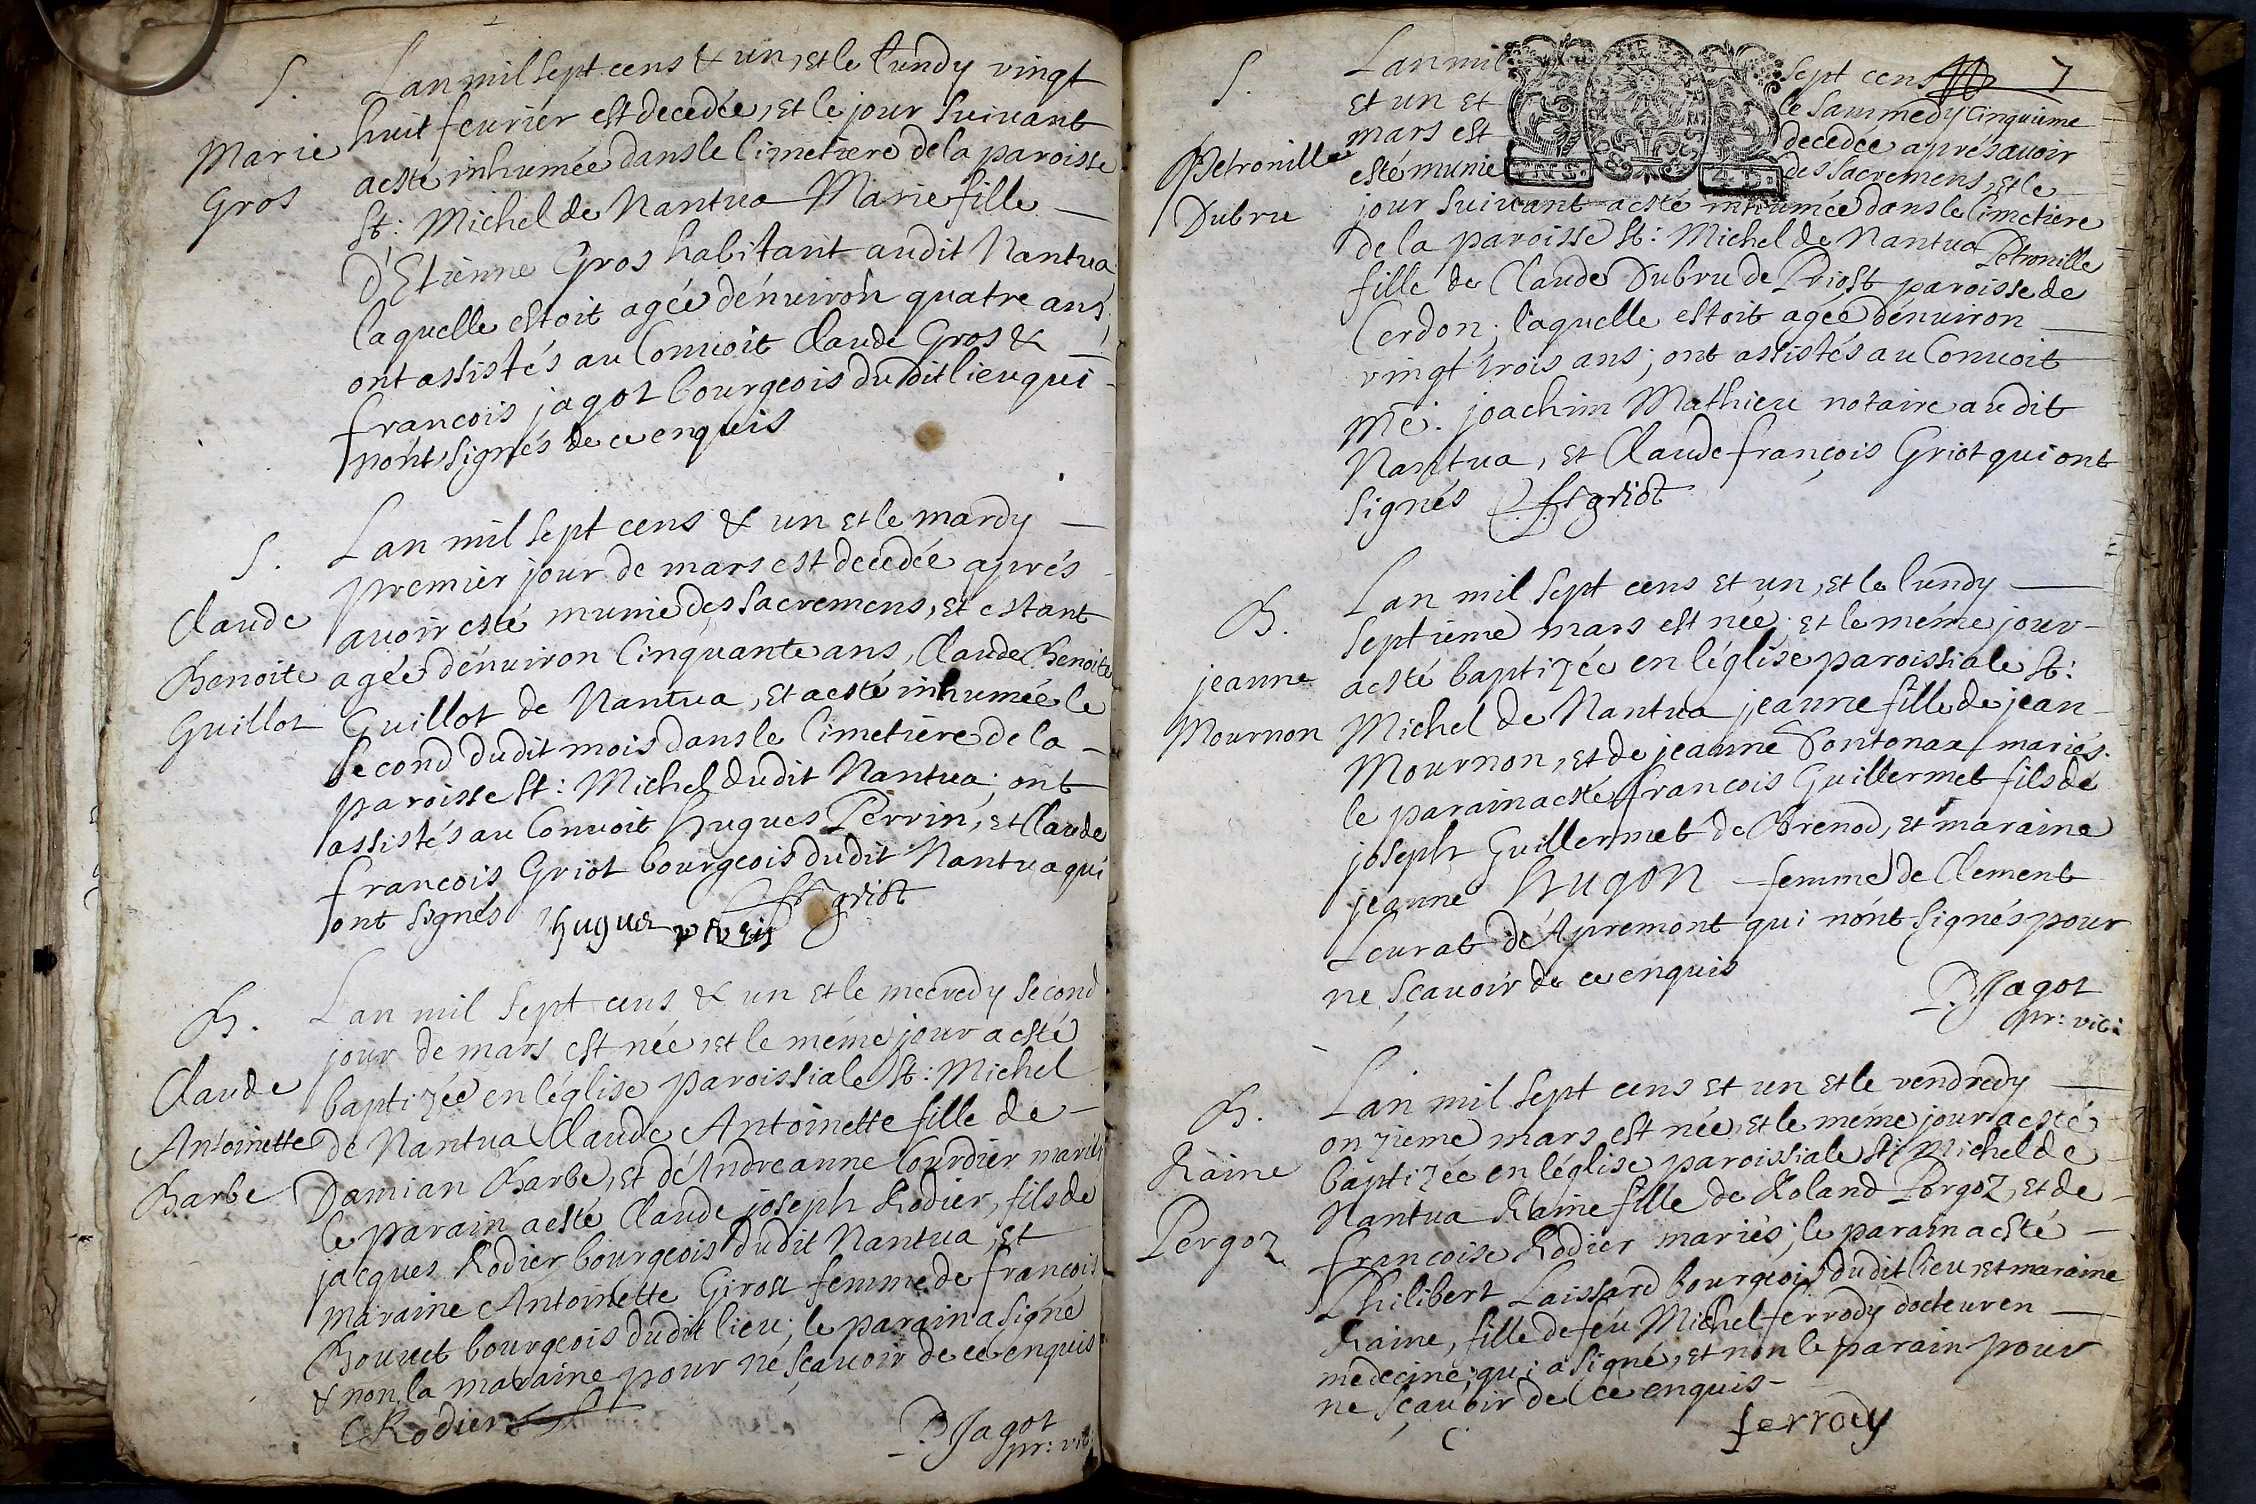 S.
Marie
Gros
Lan mil sept cens & un, et le lundy vingt
huit feurier est decedée, et le jour suiuant
a esté inhumée dans le Cimetiere de la paroisse
St: Michel de Nantua Marie fille
d'Etienne Gros habitant audit Nantua
laquelle estoit agée dénuiron quatre ans,
ont assistés au Conuoit Claude Gros &
francois jagot bourgeois du dit lieu qui
nónt signés de ce enquis
S.
Claude
Benoite
Guillot
Lan mil sept cens & un et le mardy
premier jour de mars est decedée aprés
auoir esté munie des sacremens, et estant
agée dénuiron Cinquante ans, Claude Benoite
Guillot de Nantua, et a esté inhumée le
second dudit mois dans le Cimetiere de la
paroisse St: Michel dudit Nantua; ont
assistés au Conuoit Hugues Perrin, et Claude
francois Griot bourgeois dudit Nantua qui
ont signés hugue griot
B.
Claude
Antoinette
Barbe
Lan mil sept cens & un et le mecredy second
jour de mars est née, et le méme jour a esté
baptizée en léglise paroissiale St: Michel
de Nantua Claude Antoinette fille de
Damian Barbe, et dé Andreanne Courdier mariés
le parain a esté Claude joseph Rodier, fils de
jacques Rodier bourgeois dudit Nantua, et
maraine Antoinette Girou femme de francois
Bouuet bourgeois dudit lieu; le parain a signé
& non la maraine pour ne sçauoir de ce enquis
C Rodier
P. Jagot
pr: vic:
7
S.
Petronille
Dubru
Lan mil sept cens
et un et le sammedy Cinquieme
mars est decedée apres auoir
esté munie des sacremens, et le
jour suiuant a esté inhumée dans le Cimetiere
de la paroisse St: Michel de Nantua Petronille
fille de Claude Dubru de Priost paroisse de
Cerdon; laquelle estoit agée dénuiron
vingt trois ans; ont assistés au Conuoit
Me: joachim Mathieu notaire audit
Nantua, et Claude françois Griot qui ont
signés griot
B.
jeanne
Mournon
Lan mil sept cens et un, et le lundy
septieme mars est née; et le méme jour
a esté baptizée en léglise paroissiale St:
Michel de Nantua jeanne fille de jean
Mournon, et de jeanne Sontonax mariés.
le parain a esté francois Guillermet fils de
joseph Guillermet de Brenod, et maraine
jeanne Hugon femme de Clement
Leurat dé Apremont qui nónt signés pour
ne sçauoir de ce enquis
P. Jagot
pr: vic:
B.
Raine
Pergoz
Lan mil sept cens et un et le vendredy
onzieme mars est née, et le méme jour a esté
baptizée en léglise paroissiale St: Michel de
Nantua Raine fille de Roland Pergoz, et de
francoise Rodier mariés; le parain a esté
Philibert Laissard bourgeois dudit lieu, et maraine
Raine, fille de feu Michel ferrody docteur en
medecine; qui a signé, et non le parain pour
ne sçauoir de ce enquis
ferrody